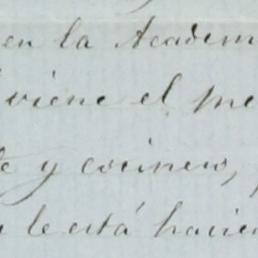 en la Academ
viene el me
y cocinero,
le está hacien